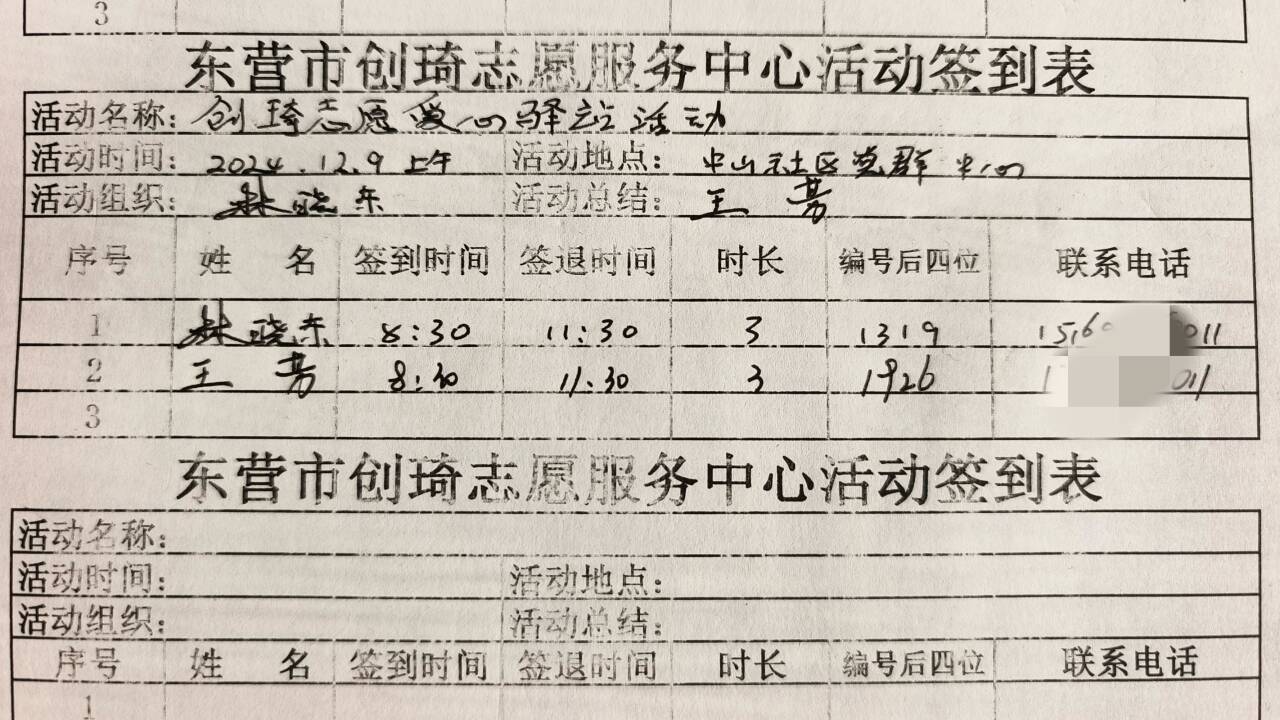 3
东营市创琦志愿服务中心活动签到表
活动名称：创琦志愿爱心驿站活动
活动时间：2024.12.9上午 活动地点：中山社区党群中心
活动组织：林晓东 活动总结：王芳
序号 姓名 签到时间 签退时间 时长 编号后四位 联系电话
1 林晓东 8:30 11:30 3 1319 1560 011
2 王芳 8:30 11:30 3 1926 1 011
3
东营市创琦志愿服务中心活动签到表
活动名称：
活动时间： 活动地点：
活动组织： 活动总结：
序号 姓名 签到时间 签退时间 时长 编号后四位 联系电话
1